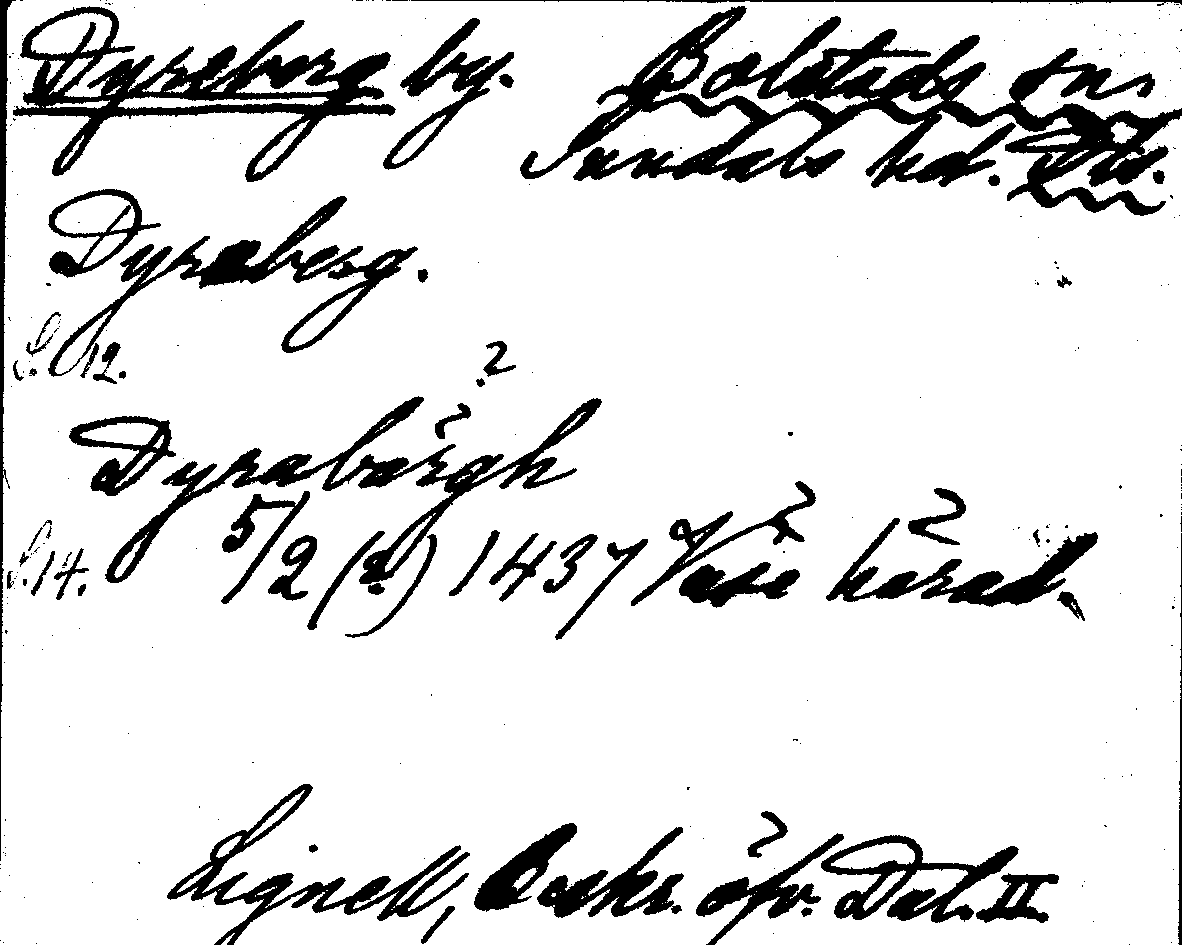 Dyreborg by. Bolstads sn,
Sundals hd. Dls.
Dyreberg.
S. 12.
Dyrabärgh
S. 14. 5/2 (a.) 1437 Väse härad.
Lignell, Beskr. öfv. Dal. II.